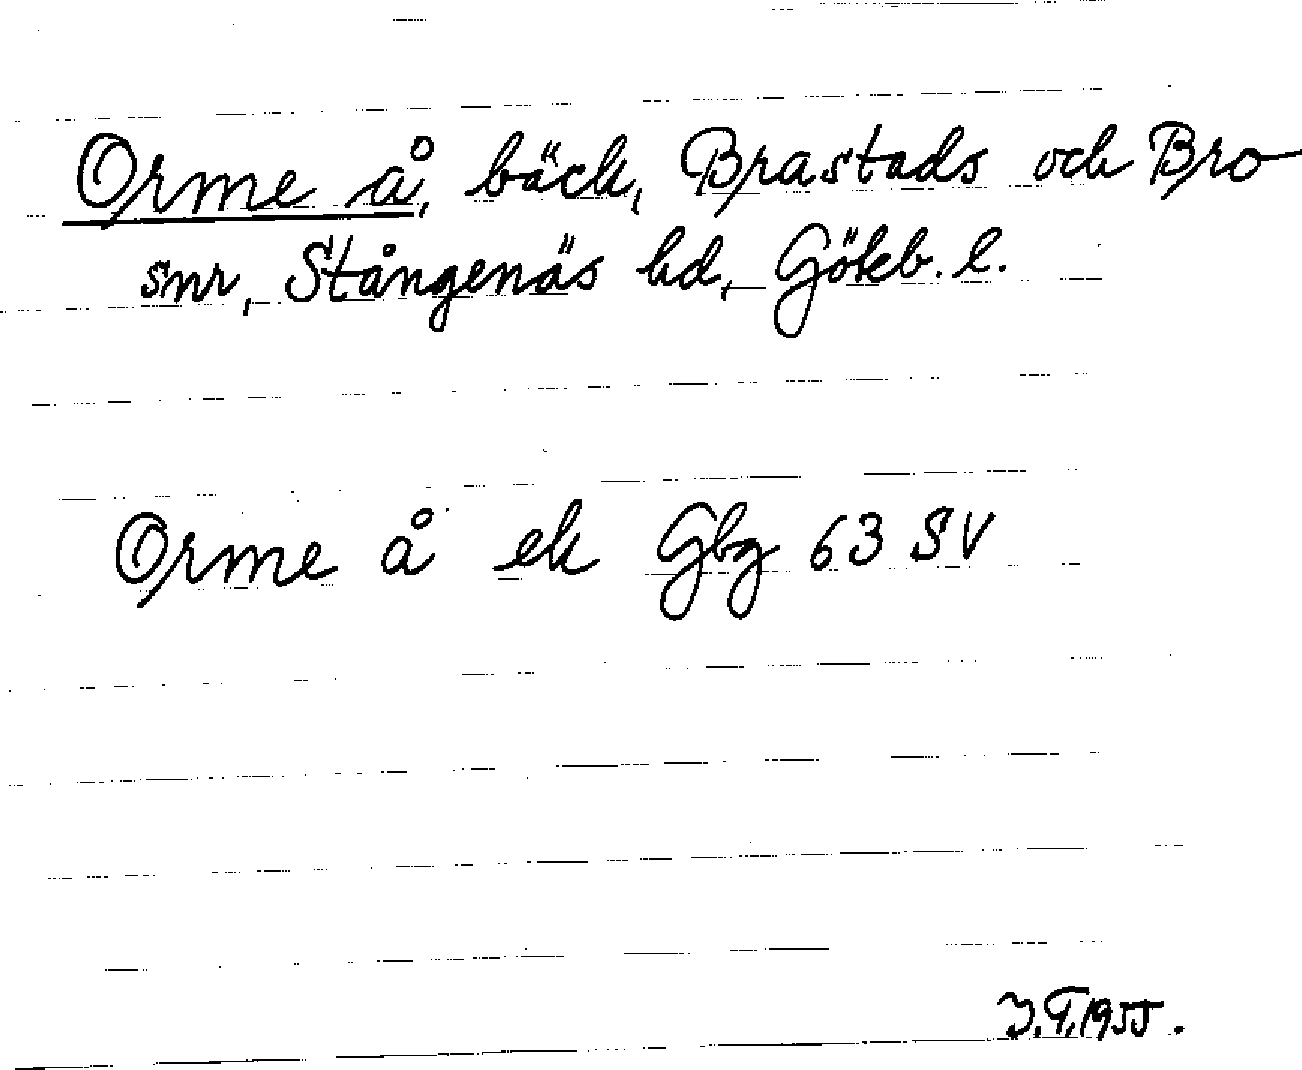 Orme å, bäck, Brastads och Bro
snr, Stångenäs hd, Gökb. l.
Orme å ek Gbg 63 SV
I.T. 1955.